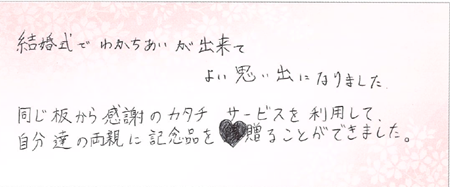 結婚式でわかちあいが出来て
よい思い出になりました
同じ板から感謝のカタチ サービスを利用して、
自分達の両親に記念品を♥贈ることができました。